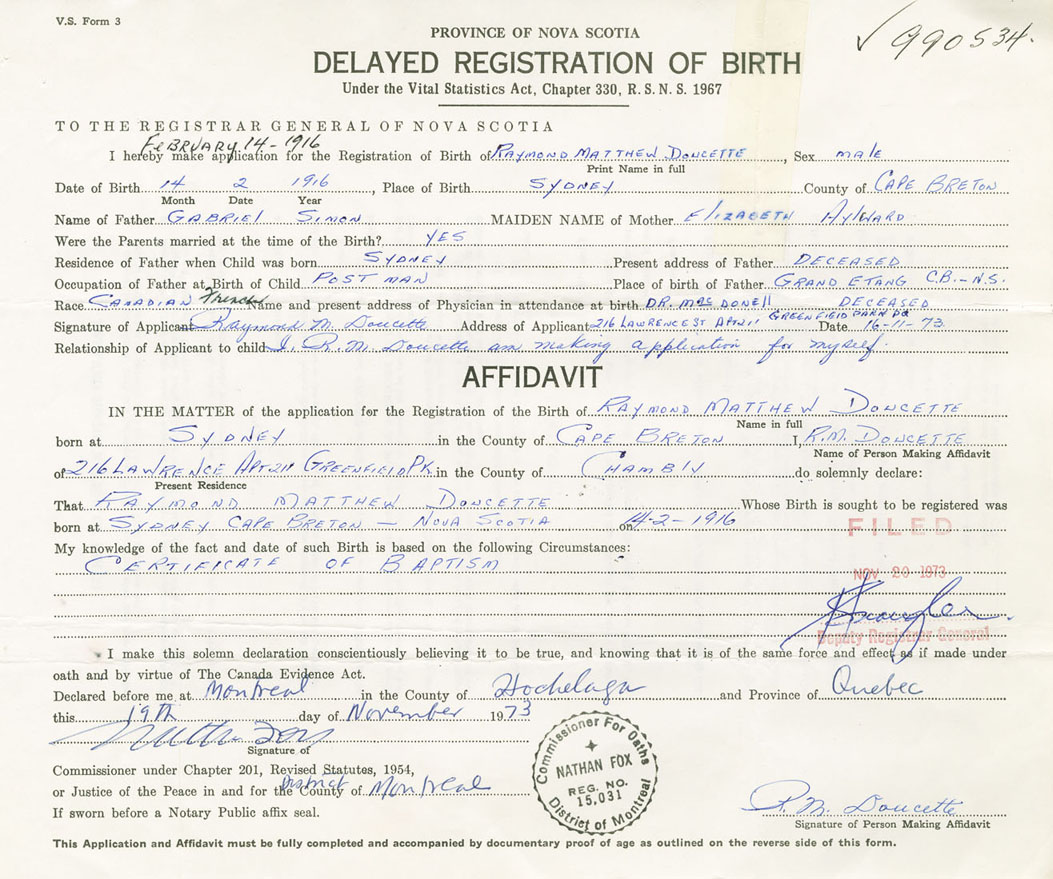 V.S. Form 3
✓ 990534.
PROVINCE OF NOVA SCOTIA
DELAYED REGISTRATION OF BIRTH
Under the Vital Statistics Act, Chapter 330, R. S. N. S. 1967
TO THE REGISTRAR GENERAL OF NOVA SCOTIA
FEBRUARY 14 - 1916
I hereby make application for the Registration of Birth of RAYMOND MATTHEW DOUCETTE, Sex male
Print Name in full
Date of Birth 14 2 1916, Place of Birth SYDNEY County of CAPE BRETON
Month Date Year
Name of Father GABRIEL SIMON MAIDEN NAME of Mother ELIZABETH AYLWARD
Were the Parents married at the time of the Birth? YES
Residence of Father when Child was born SYDNEY Present address of Father DECEASED
Occupation of Father at Birth of Child POSTMAN Place of birth of Father GRAND ETANG C.B.-N.S.
Race CANADIAN French Name and present address of Physician in attendance at birth DR. MACDONELL DECEASED
Signature of Applicant Raymond M. Doucette Address of Applicant 216 LAWRENCE ST APT 211 GREENFIELD PARK PQ Date 16-11-73
Relationship of Applicant to child I, R.M. Doucette am making application for myself.
AFFIDAVIT
IN THE MATTER of the application for the Registration of the Birth of RAYMOND MATTHEW DOUCETTE
Name in full
born at SYDNEY in the County of CAPE BRETON I, R.M. DOUCETTE
Name of Person Making Affidavit
of 216 LAWRENCE APT 211 GREENFIELD PK in the County of CHAMBLY do solemnly declare:
Present Residence
That RAYMOND MATTHEW DOUCETTE Whose Birth is sought to be registered was
born at SYDNEY CAPE BRETON - NOVA SCOTIA on 14-2-1916
FILED
My knowledge of the fact and date of such Birth is based on the following Circumstances:
CERTIFICATE OF BAPTISM
NOV 20 1973
Deputy Registrar General
I make this solemn declaration conscientiously believing it to be true, and knowing that it is of the same force and effect as if made under
oath and by virtue of The Canada Evidence Act.
Declared before me at Montreal in the County of Hochelaga and Province of Quebec
this 19th day of November 1973
Signature of
Commissioner under Chapter 201, Revised Statutes, 1954,
or Justice of the Peace in and for the District County of Montreal
If sworn before a Notary Public affix seal.
Commissioner For Oaths
NATHAN FOX
REG. NO.
15,031
District of Montreal
R. M. Doucette
Signature of Person Making Affidavit
This Application and Affidavit must be fully completed and accompanied by documentary proof of age as outlined on the reverse side of this form.